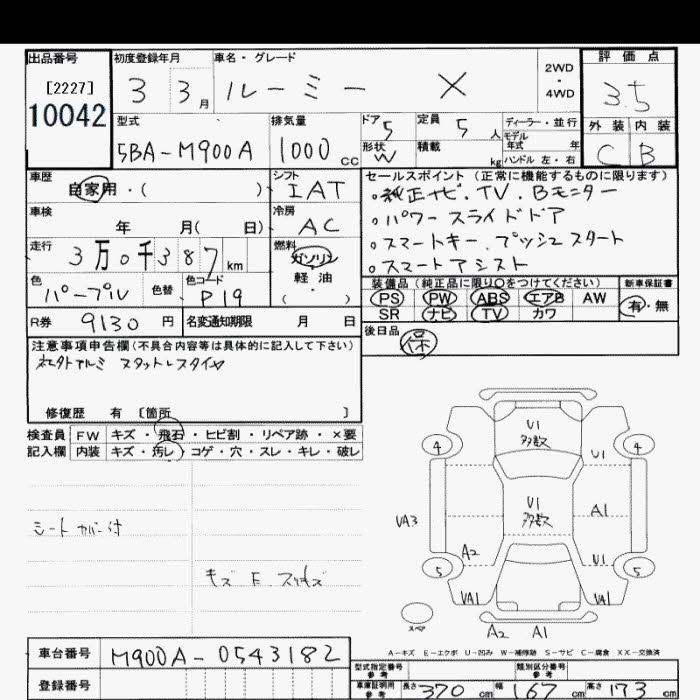 出品番号 [2227] 10042
初度登録年月 3 3月
車名・グレード ルーミー X
2WD・4WD
評価点 3.5
型式 5BA-M900A
排気量 1000cc
ドア 5
形状 W
定員 5人
積載 kg
ディーラー・並行
モデル年式 年
ハンドル 左・右
外装 C
内装 B
車歴 自家用・( )
シフト IAT
車検 年 月( 日)
冷房 AC
走行 3万0千387km
燃料 ガソリン 軽油 ( )
色 パープル
色替
色コード P19
R券 9130円
名変通知期限 月 日
セールスポイント (正常に機能するものに限ります)
・純正ナビ.TV.Bモニター
・パワースライドドア
・スマートキー.プッシュスタート
・スマートアシスト
装備品 (純正品に限り○をつけてください)
PS PW ABS エアB AW
SR ナビ TV カワ
新車保証書 有・無
後日品 保
注意事項申告欄(不具合内容等は具体的に記入して下さい)
社外アルミ スタットレスタイヤ
修復歴 有 [箇所 ]
検査員 FW キズ・飛石・ヒビ割・リペア跡・×要
記入欄 内装 キズ・汚レ・コゲ・穴・スレ・キレ・破レ
シートカバー付
U1
多数
4 4
U1
U1
多数
VA3 A1
A2 U1
5 5
VA1 VA1
スペア
A2 A1
A-キズ E-エクボ U-凹み W-補修跡 S-サビ C-腐食 XX-交換済
車台番号 M900A-0543182
登録番号
型式指定番号 参考
類別区分番号 参考
車庫証明用 参考 長さ 370cm 幅 167cm 高さ 173cm